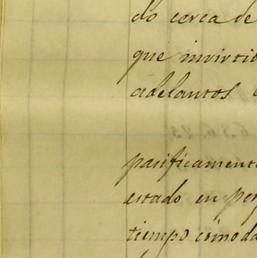 do cerca de
que invirtió
adelantos
pasificament
estado en per
tiempo cómoda